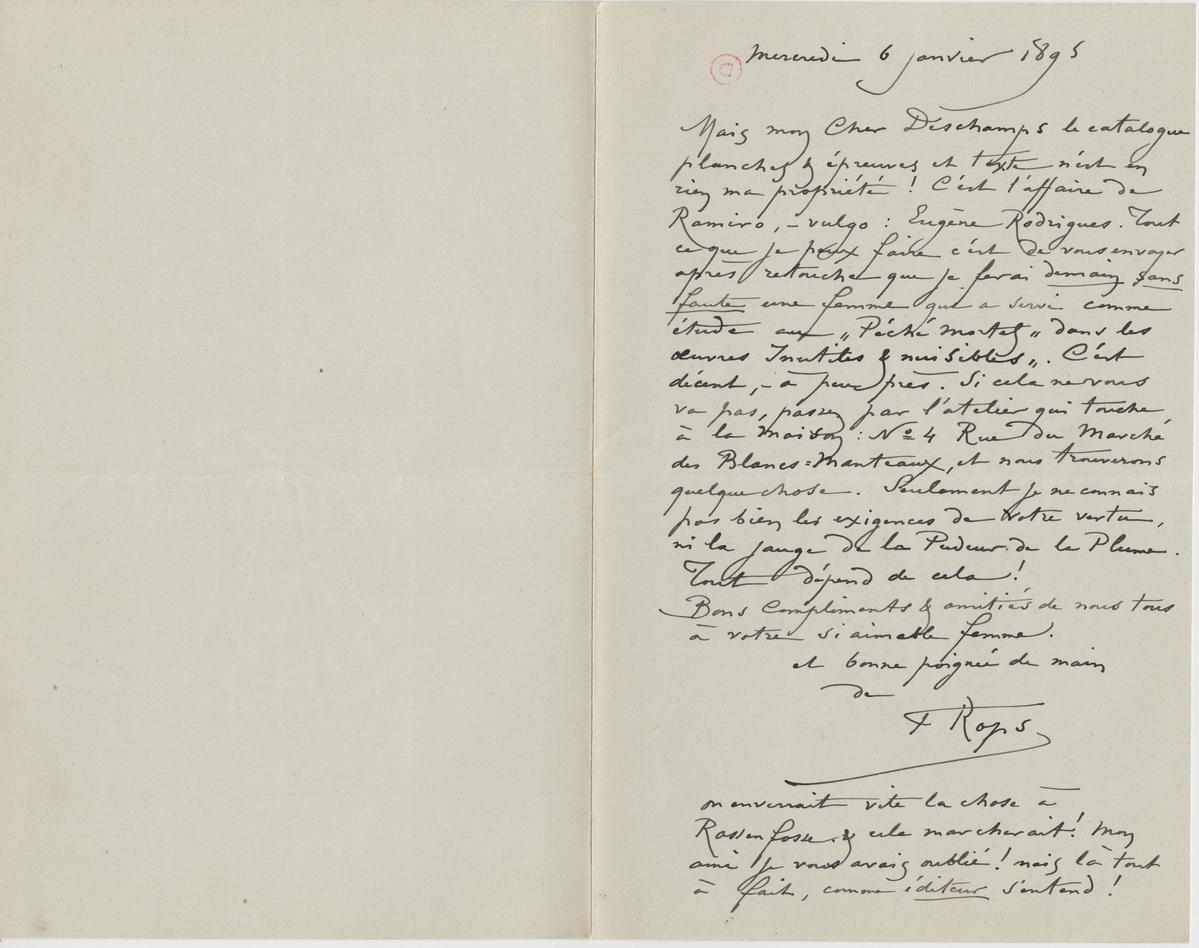 Mercredi 6 janvier 1895
Mais mon Cher Déschamps le catalogue
planches & épreuves et texte n'est en
rien ma propriété ! C'est l'affaire de
Ramiro, – vulgo : Eugène Rodrigues. Tout
ce que je peux faire c'est de vous envoyer
après retouche que je ferai demain sans
faute une femme qui a servi comme
étude au „Péché mortel„ dans les
œuvres Inutiles & nuisibles„. C'est
décent, – à peu près. Si cela ne vous
va pas, passez par l'atelier qui touche
à la maison : No 4 Rue du Marché
des Blancs=Manteaux, et nous trouverons
quelque chose. Seulement je ne connais
pas bien les exigences de votre vertu,
ni la jauge de la Pudeur de la Plume.
Tout dépend de cela !
Bons Compliments & amitiés de nous tous
à votre si aimable femme.
et bonne poignée de main
de
F Rops
on enverrait vite la chose à
Rassenfosse & cela marcherait ! Mon
ami je vous avais oublié ! mais là tout
à fait, comme éditeur s'entend !